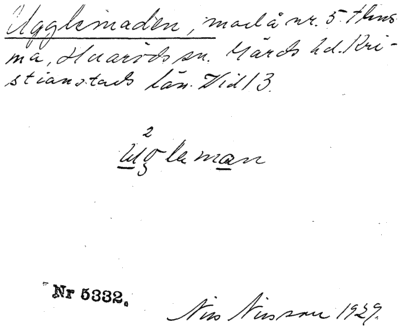 Ugglemaden, mad å nr. 5 Huns-
ma, Huaröds sn. Gärds hd. Kri-
stianstads län. Vid 13.
2
Ugleman
Nr 5332.
Nils Nilsson 1929.